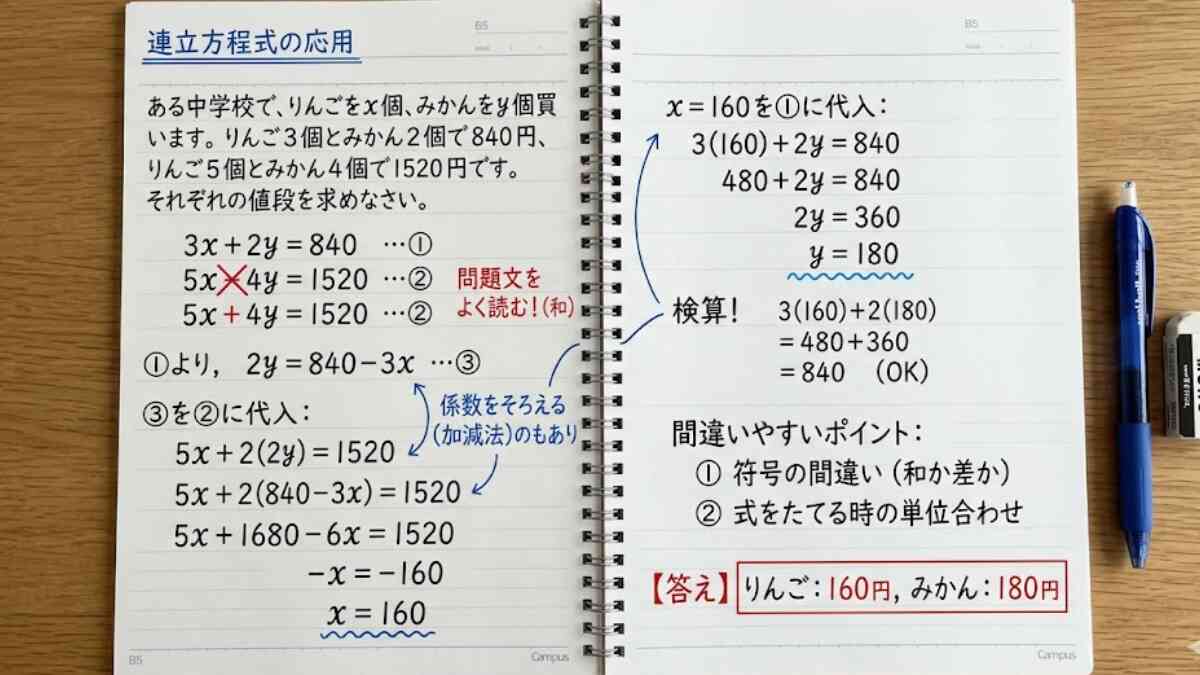 連立方程式の応用
ある中学校で、りんごをx個、みかんをy個買
います。りんご3個とみかん2個で840円、
りんご5個とみかん4個で1520円です。
それぞれの値段を求めなさい。
3x+2y=840 …①
5x-4y=1520 …②
5x+4y=1520 …②
問題文を
よく読む!(和)
①より, 2y=840-3x …③
③を②に代入:
5x+2(2y)=1520
5x+2(840-3x)=1520
5x+1680-6x=1520
-x=-160
x=160
係数をそろえる
(加減法)のもあり
B5
Campus
B5
x=160を①に代入:
3(160)+2y=840
480+2y=840
2y=360
y=180
検算! 3(160)+2(180)
=480+360
=840 (OK)
間違いやすいポイント:
① 符号の間違い (和か差か)
② 式をたてる時の単位合わせ
【答え】 りんご:160円, みかん:180円
B5
Campus